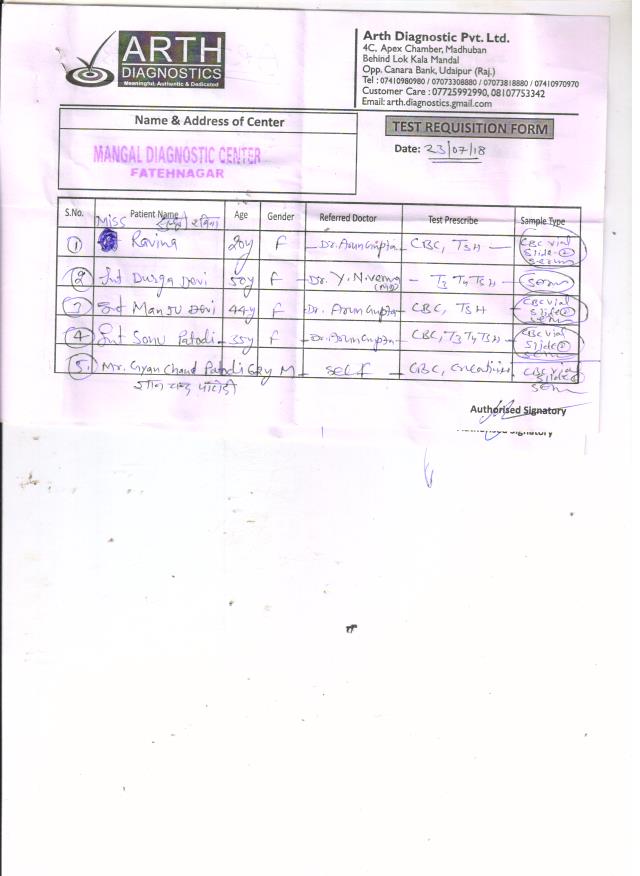 ARTH
DIAGNOSTICS
Meaningful, Authentic & Dedicated
Arth Diagnostic Pvt. Ltd.
4C, Apex Chamber, Madhuban
Behind Lok Kala Mandal
Opp. Canara Bank, Udaipur (Raj.)
Tel : 07410980980 / 07073308880 / 07073818880 / 07410970970
Customer Care : 07725992990, 08107753342
Email: arth.diagnostics.gmail.com
Name & Address of Center
TEST REQUISITION FORM
MANGAL DIAGNOSTIC CENTER
FATEHNAGAR
Date: 23/07/18
S.No. Patient Name Age Gender Referred Doctor Test Prescribe Sample Type
Miss रविना
1 Ravina 20y F Dr. Arun Gupta CBC, TSH CBC vial slide serum
2 Smt Durga Devi 50y F Dr. Y.N. Verma (MD) T3 T4 TSH serum
3 Smt Manju Devi 44y F Dr. Arun Gupta CBC, TSH CBC vial slide serum
4 Smt Sonu Patodi 35y F Dr. Arun Gupta CBC, T3 T4 TSH CBC vial slide serum
5. Mr. Gyan Chand Patodi M self CBC, Creatinine CBC vial slide serum
ज्ञान चन्द पाटोदी
Authorised Signatory
Signatory